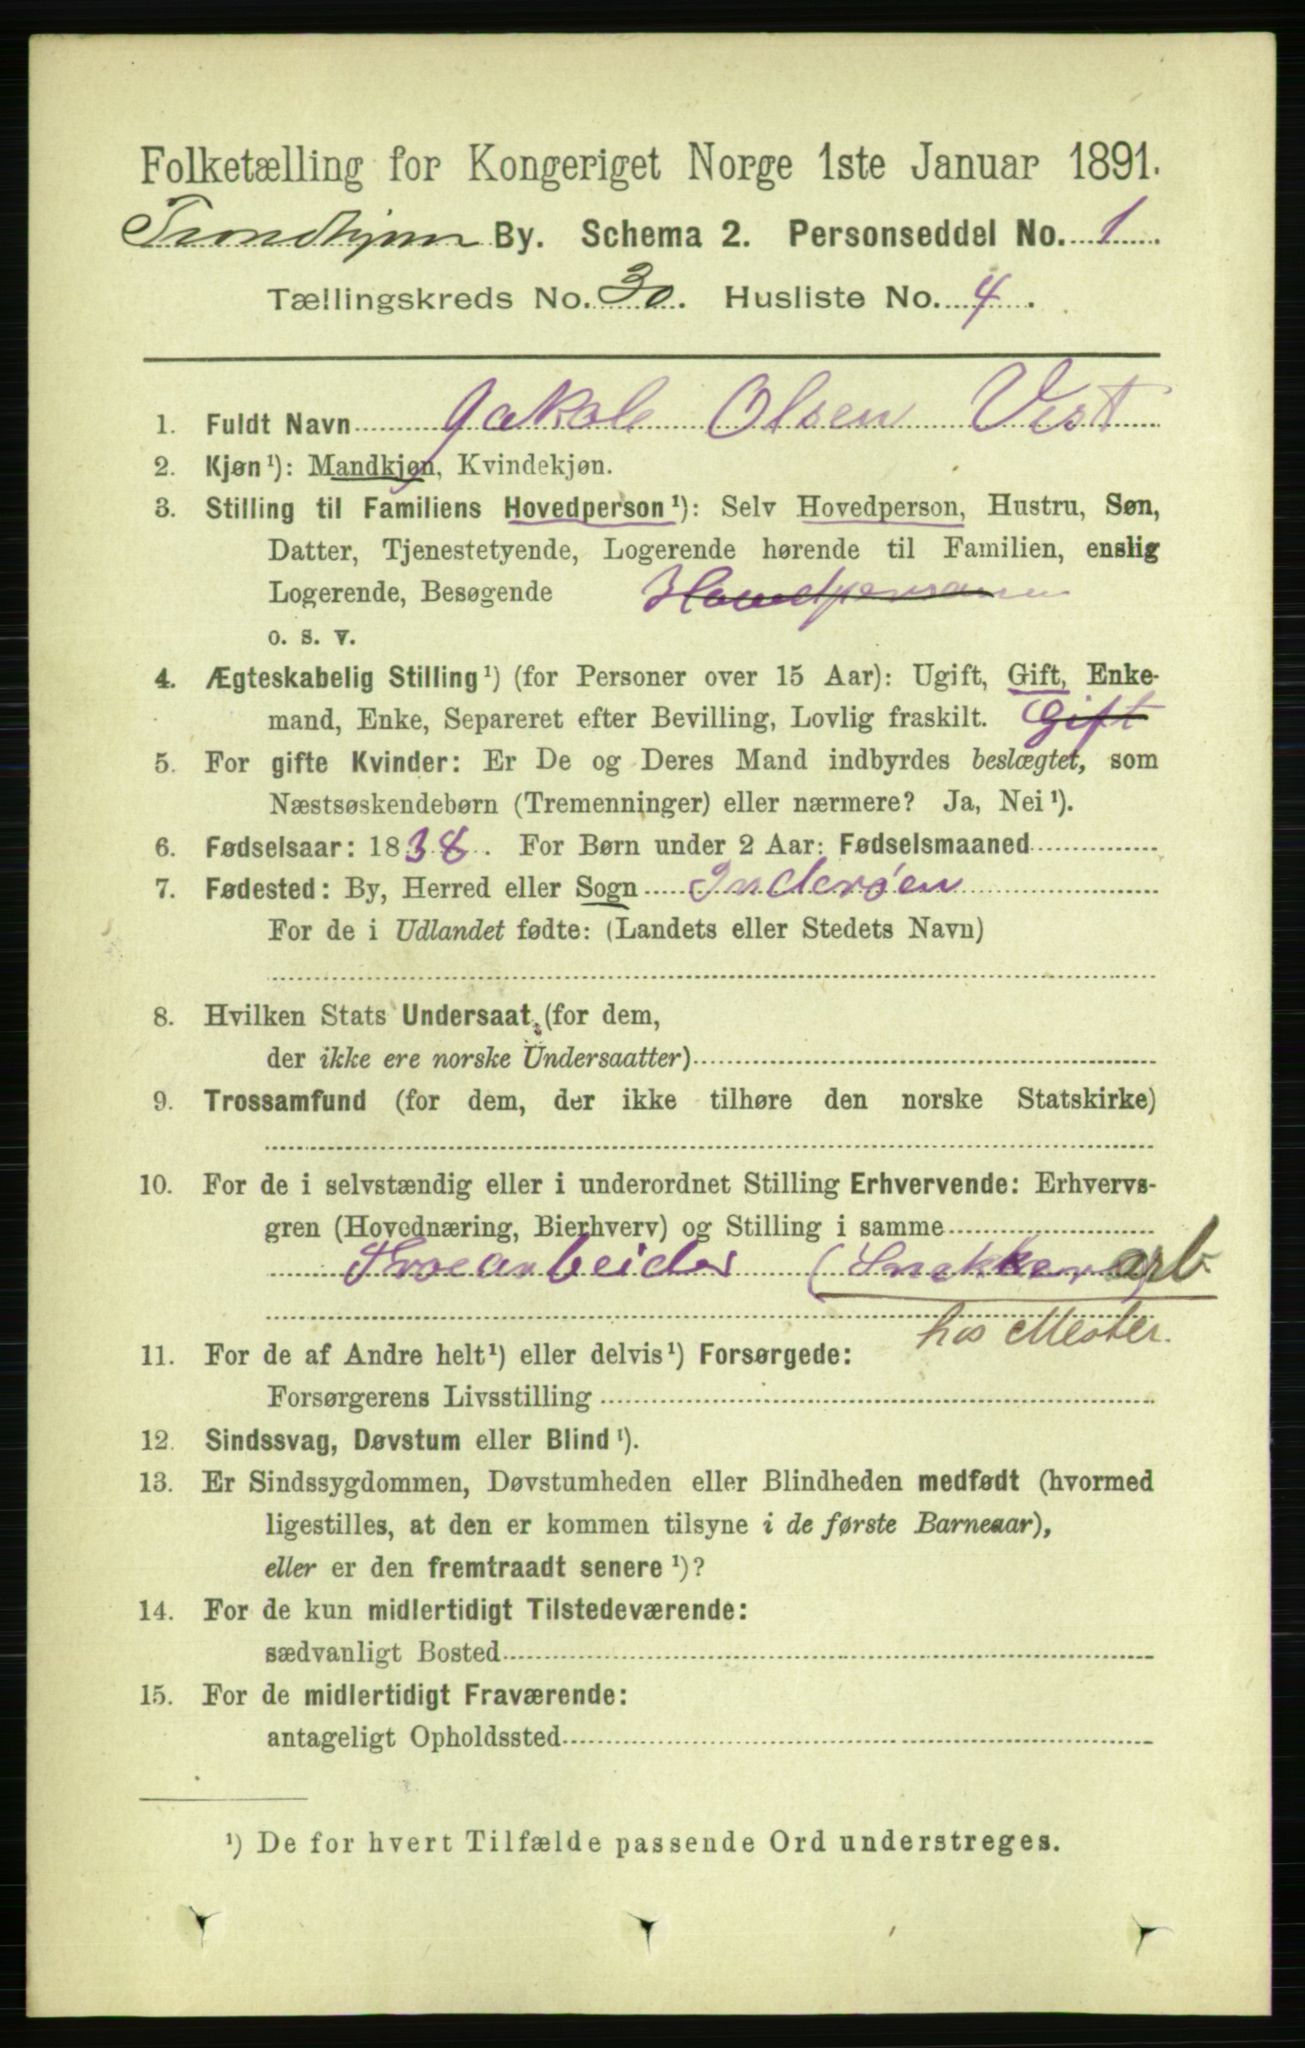 Folketælling for Kongeriget Norge 1ste Januar 1891.
Trondhjem By. Schema 2. Personseddel No. 1
Tællingskreds No. 30. Husliste No. 4.
1. Fuldt Navn Jakob Olsen Vist
2. Kjøn¹): Mandkjøn, Kvindekjøn.
3. Stilling til Familiens Hovedperson¹): Selv Hovedperson, Hustru, Søn,
Datter, Tjenestetyende, Logerende hørende til Familien, enslig
Logerende, Besøgende Hovedperson
o. s. v.
4. Ægteskabelig Stilling¹) (for Personer over 15 Aar): Ugift, Gift, Enke-
mand, Enke, Separeret efter Bevilling, Lovlig fraskilt. Gift
5. For gifte Kvinder: Er De og Deres Mand indbyrdes beslægtet, som
Næstsøskendebørn (Tremenninger) eller nærmere? Ja, Nei¹).
6. Fødselsaar: 1838. For Børn under 2 Aar: Fødselsmaaned
7. Fødested: By, Herred eller Sogn Inderøen
For de i Udlandet fødte: (Landets eller Stedets Navn)
8. Hvilken Stats Undersaat (for dem,
der ikke ere norske Undersaatter)
9. Trossamfund (for dem, der ikke tilhøre den norske Statskirke)
10. For de i selvstændig eller i underordnet Stilling Erhvervende: Erhvervs-
gren (Hovednæring, Bierhverv) og Stilling i samme
Træarbeider (Snekkerarb
hos Mester.
11. For de af Andre helt¹) eller delvis¹) Forsørgede:
Forsørgerens Livsstilling
12. Sindssvag, Døvstum eller Blind¹).
13. Er Sindssygdommen, Døvstumheden eller Blindheden medfødt (hvormed
ligestilles, at den er kommen tilsyne i de første Barneaar),
eller er den fremtraadt senere¹)?
14. For de kun midlertidigt Tilstedeværende:
sædvanligt Bosted
15. For de midlertidigt Fraværende:
antageligt Opholdssted
¹) De for hvert Tilfælde passende Ord understreges.